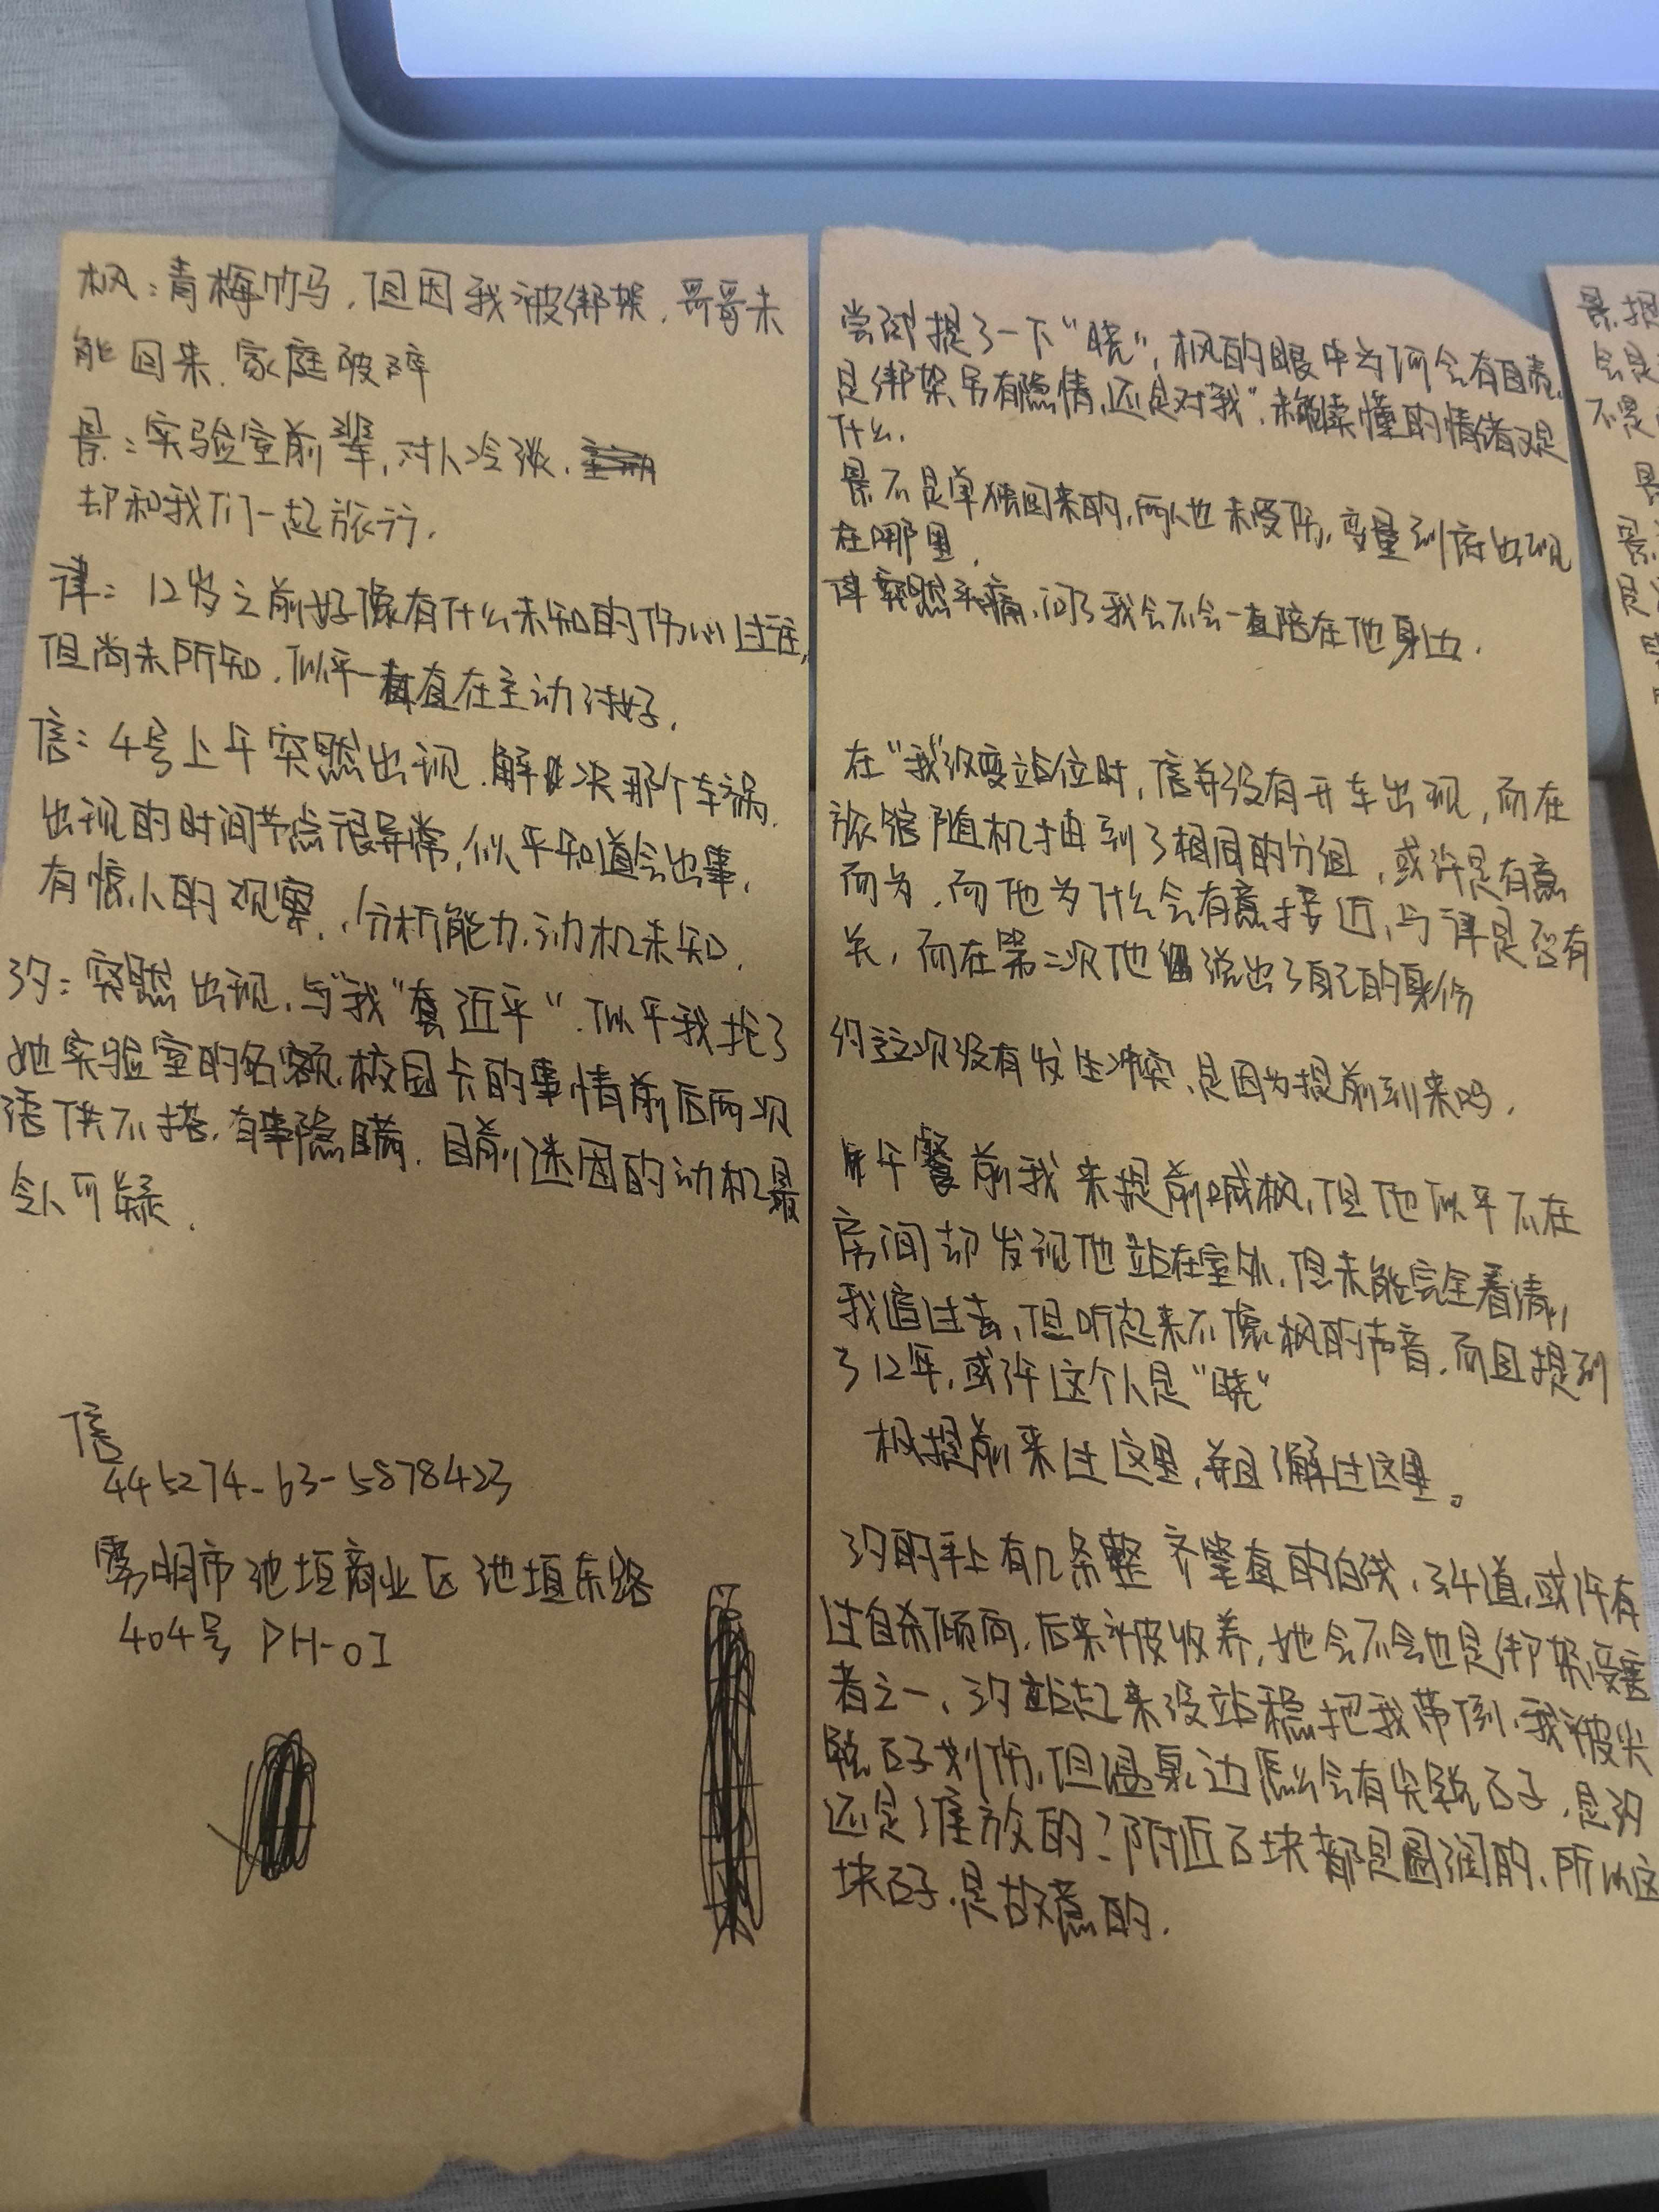 枫：青梅竹马，但因我被绑架，哥哥未
能回来，家庭破碎
景：实验室前辈，对人冷淡，
却和我们一起旅行．
律：12岁之前好像有什么未知的伤心过往，
但尚未所知，似乎一直在主动讨好．
信：4号上午突然出现．解决那个车祸．
出现的时间节点很异常，似乎知道会出事，
有惊人的观察，分析能力，动机未知．
汐：突然出现，与"我"套近乎"．似乎我抢了
她实验室的名额，校园卡的事情前后两次
语供不搭，有事隐瞒．目前迷因的动机最
令人可疑．
信
445274-63-5878423
雾明市池垣商业区池垣东路
404号 PH-01
尝试提了一下"晓"，枫的眼中为何会有自责，
是绑架另有隐情，还是对"我"，未能读懂的情绪又是
什么．
景不是单独回来的，两人也未受伤，变量到底出现
在哪里．
律突然头痛，问了我会不会一直陪在他身边．
在"我"改变站位时，信并没有开车出现，而在
旅馆随机抽到了相同的分组，或许是有意
而为，而他为什么会有意接近，与律是否有
关，而在第二次他说出了自己的身份
约这次没有发生冲突，是因为提前到来吗．
午餐前我来提前喊枫，但他似乎不在
房间却发现他站在室外，但未能完全看清，
我追过去，但听起来不像枫的声音，而且提到
了12年，或许这个人是"晓"
枫提前来过这里，并且了解过这里。
汐的手上有几条整齐笔直的白线，3年道，或许有
过自杀倾向，后来被收养，她会不会也是绑架受害
者之一，汐站起来没站稳把我带倒，我被尖
锐石子划伤，但温泉边怎么会有尖锐石子，是汐
还是谁放的？附近石块都是圆润的，所以这
块石子是故意的．
景提
会是
不是